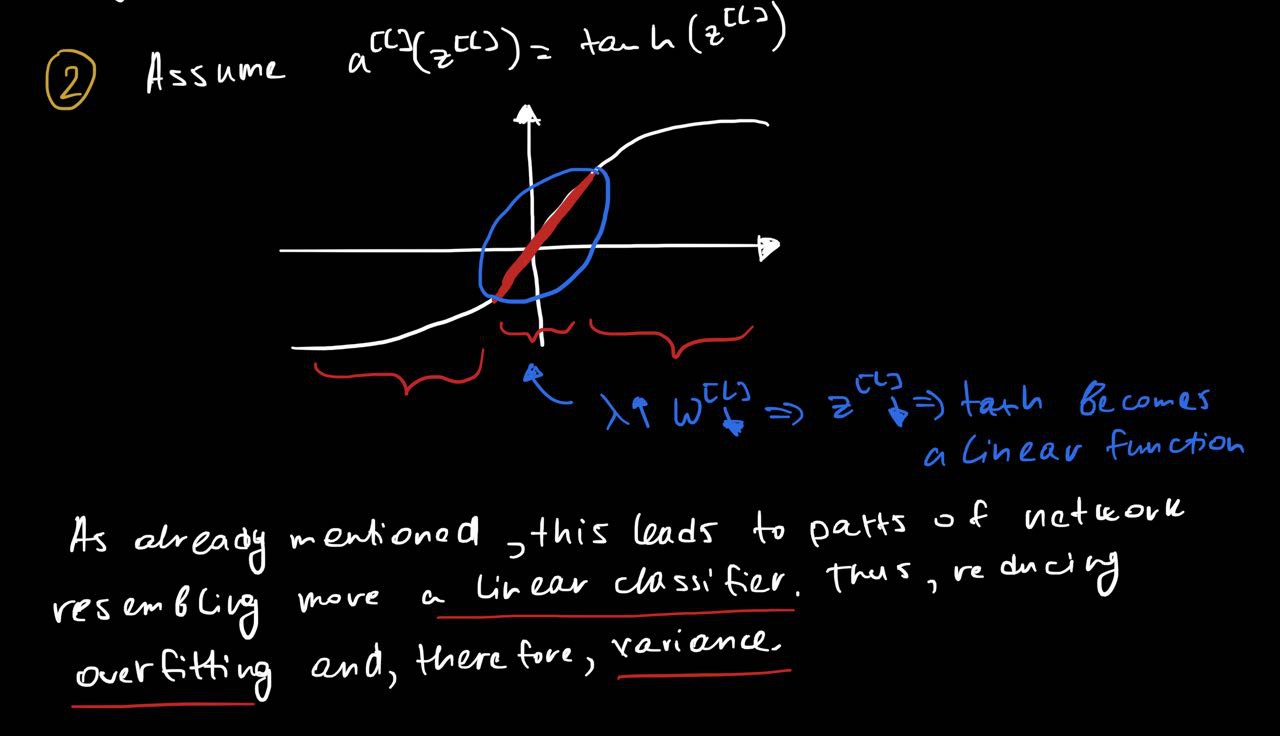 2 Assume a^[L](z^[L]) = tanh(z^[L])
λ↑ W^[L]↓ ⇒ z^[L]↓ ⇒ tanh becomes
a linear function
As already mentioned, this leads to parts of network
resembling more a linear classifier. Thus, reducing
overfitting and, therefore, variance.